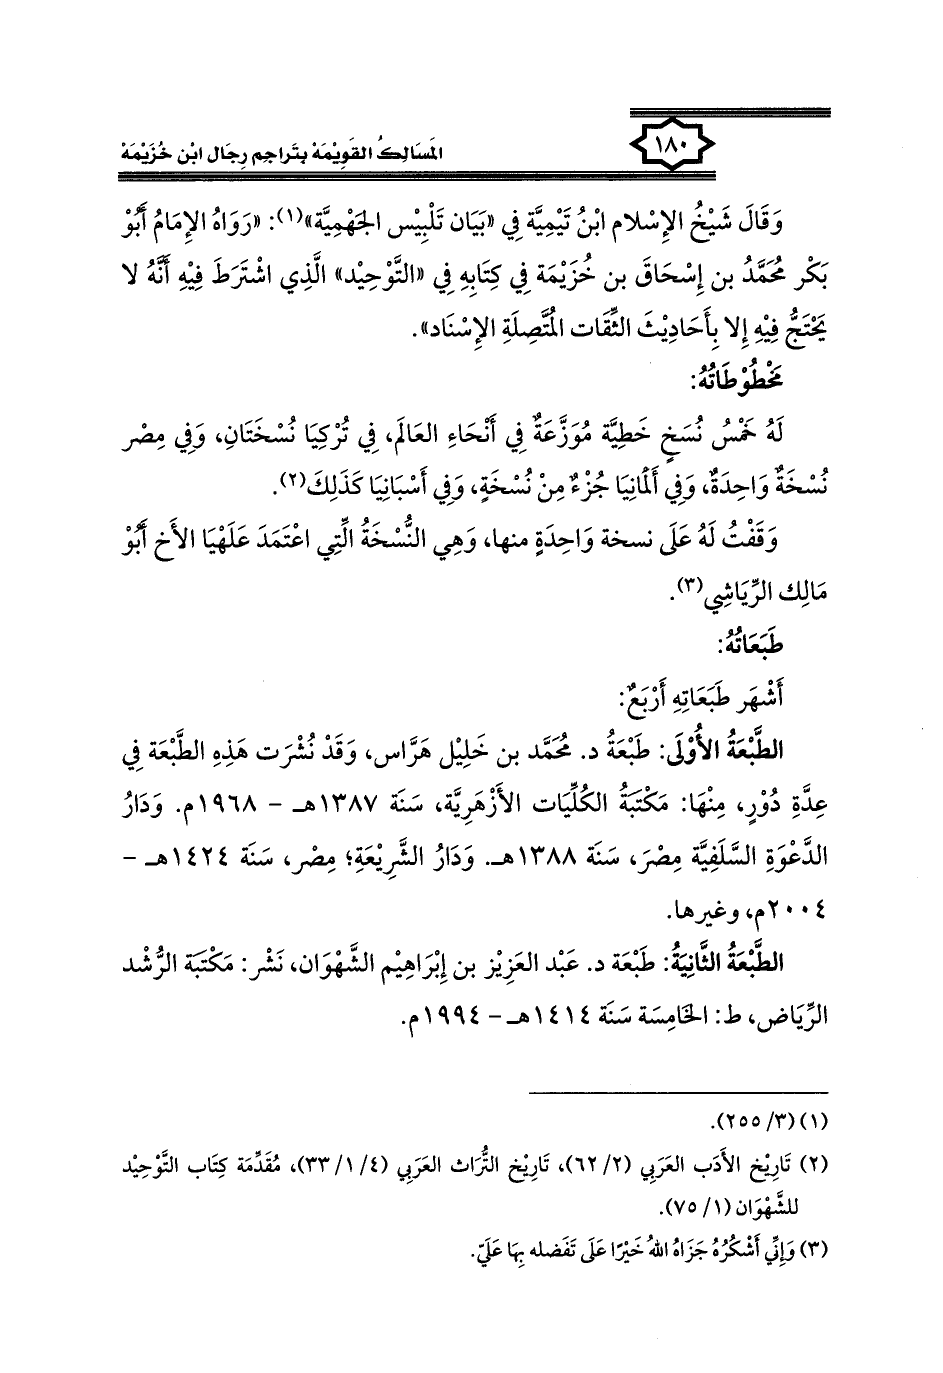 ١٨٠
المَسَالِكُ القَوِيْمَهْ بتَراجم رِجَال ابْن خُزَيْمَهْ
وَقَالَ شَيْخُ الإِسْلام ابْنُ تَيْمِيَّة فِي «بَيَان تَلْبِيْس الجَهْمِيَّة»(١): «رَوَاهُ الإِمَامُ أَبُوْ
بَكْر مُحَمَّدُ بن إِسْحَاقَ بن خُزَيْمَة فِي كِتَابِهِ فِي «التَّوْحِيْد» الَّذِي اشْتَرَطَ فِيْهِ أَنَّهُ لا
يَحْتَجُّ فِيْهِ إِلا بِأَحَادِيْثَ الثِّقَات المُتَّصِلَةِ الإِسْنَاد».
مَخْطُوْطَاتُهُ:
لَهُ خَمْسُ نُسَخٍ خَطِيَّة مُوَزَّعَةٌ فِي أَنْحَاءِ العَالَمِ، فِي تُرْكِيَا نُسْخَتَانِ، وَفِي مِصْر
نُسْخَةٌ وَاحِدَةٌ، وَفِي أَلْمَانِيَا جُزْءٌ مِنْ نُسْخَةٍ، وَفِي أَسْبَانِيَا كَذَلِكَ(٢).
وَقَفْتُ لَهُ عَلَى نسخة وَاحِدَةٍ منها، وَهِي النُّسْخَةُ الَّتِي اعْتَمَدَ عَلَهْيَا الأَخ أَبُوْ
مَالِك الرِّيَاشِي(٣).
طَبَعَاتُهُ:
أَشْهَر طَبَعَاتِهِ أَرْبَعٌ:
الطَّبْعَةُ الأُوْلَى: طَبْعَةُ د. مُحَمَّد بن خَلِيْل هَرَّاس، وَقَدْ نُشْرَت هَذِهِ الطَّبْعَة فِي
عِدَّةِ دُوْرٍ، مِنْهَا: مَكْتَبَةُ الكُلِّيَات الأَزْهَرِيَّة، سَنَة ١٣٨٧هـ - ١٩٦٨م. وَدَارُ
الدَّعْوَةِ السَّلَفِيَّة مِصْرَ، سَنَة ١٣٨٨هـ. وَدَارُ الشَّرِيْعَةِ؛ مِصْر، سَنَة ١٤٢٤هـ -
٢٠٠٤م، وغيرها.
الطَّبْعَةُ الثَّانِيَةُ: طَبْعَة د. عَبْد العَزِيْز بن إِبْرَاهِيْم الشَّهْوَان، نَشْر: مَكْتَبَة الرُّشْد
الرِّيَاض، ط: الخَامِسَة سَنَة ١٤١٤هـ - ١٩٩٤م.
(١) (٣/ ٢٥٥).
(٢) تَارِيْخ الأَدَب العَرَبِي (٢/ ٦٢)، تَارِيْخ التُّرَاث العَرَبِي (٤/ ١/ ٣٣)، مُقَدِّمَة كِتَاب التَّوْحِيْد
للشَّهْوَان (١/ ٧٥).
(٣) وَإِنِّي أَشْكُرُهُ جَزَاهُ اللهُ خَيْرًا عَلَى تَفَضله بِهَا عَلَيّ.